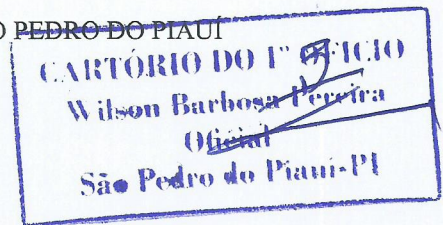 O PEDRO DO PIAUÍ
CARTÓRIO DO 1º OFICIO
Wilson Barbosa Pereira
Oficial
São Pedro do Piauí-PI